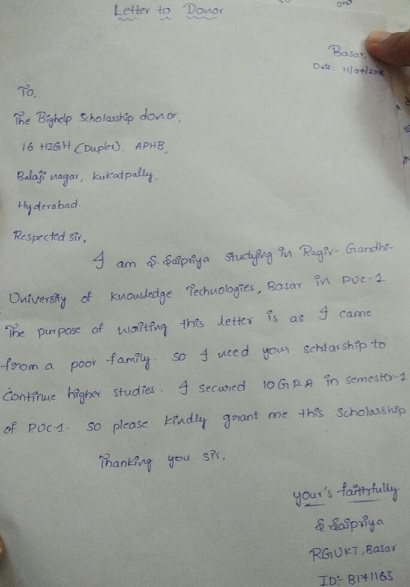 Letter to Donor
Basar,
Date: 11/04/
To,
The Bighelp Scholarship donor,
16 HIGH (Duplex), APHB,
Balaji nagar, kukatpally,
Hyderabad.
Respected sir,
I am S. Saipriya studying in Ragiv-Gandhi-
University of knowledge Technologies, Basar in PUC-1
The purpose of writing this letter is as I came
from a poor family. so I need your scholarship to
continue higher studies. I secured 10 G.P.A in semester-1
of PUC-1. so please kindly grant me this scholarship
Thanking you sir.
your's faithfully
S. Saipriya
RGUKT, Basar
ID:- B171163